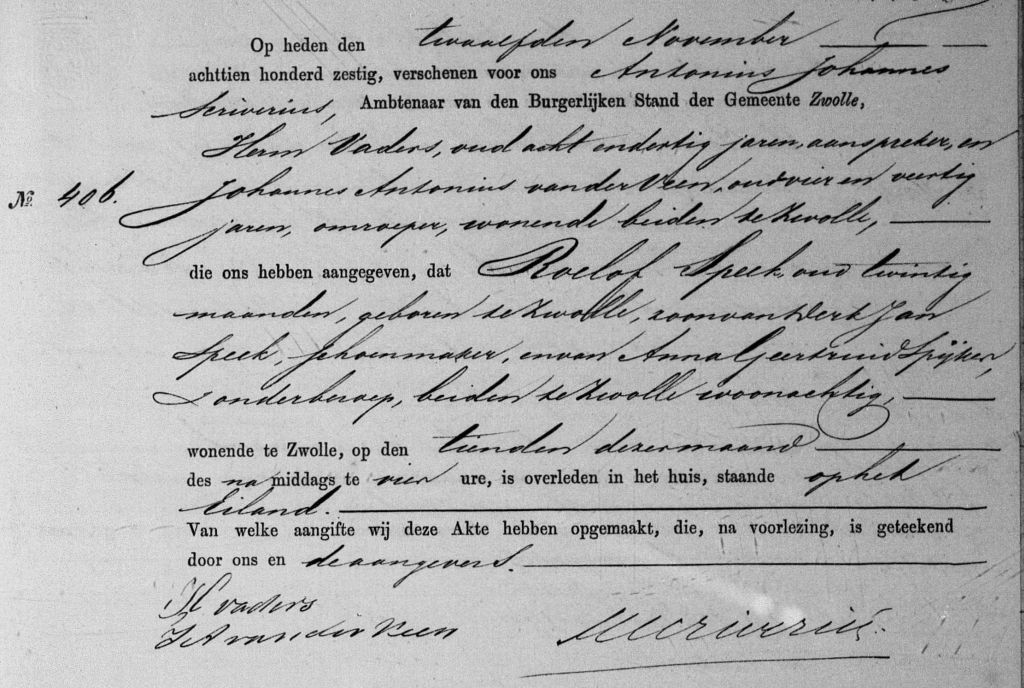 Op heden den twaalfden November
achttien honderd zestig, verschenen voor ons Antonius Johannes
Scriverius, Ambtenaar van den Burgerlijken Stand der Gemeente Zwolle,
Harm Vaders, oud acht en dertig jaren, aanspreker, en
No. 406. Johannes Antonius van der Veen, oud vier en veertig
jaren, omroeper, wonende beiden te Zwolle,
die ons hebben aangegeven, dat Roelof Speek, oud twintig
maanden, geboren te Zwolle, zoon van Derk Jan
Speek, schoenmaker, en van Anna Geertruid Spijker,
zonder beroep, beiden te Zwolle woonachtig,
wonende te Zwolle, op den tienden dezer maand
des na middags te vier ure, is overleden in het huis, staande op het
Eiland.
Van welke aangifte wij deze Akte hebben opgemaakt, die, na voorlezing, is geteekend
door ons en de aangevers.
H vaders
J A van der Veen